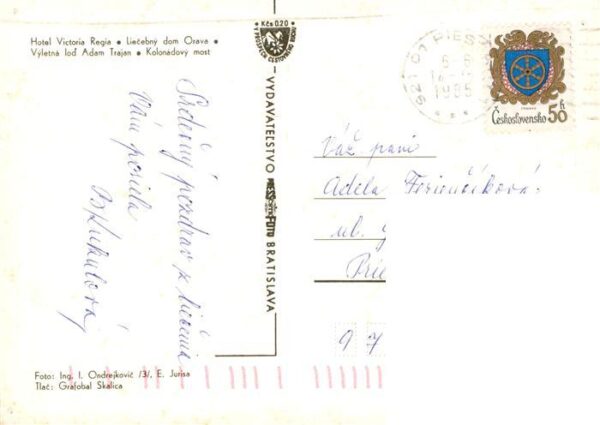 Hotel Victoria Regia • Liečebný dom Orava •
Výletná loď Adam Trajan • Kolonádový most
Kčs 0,20
VYDAVATEĽSTVO
FOTO BRATISLAVA
921 01 PIEŠ
1985
Československo 50 h
Srdečný pozdrav z liečenia
Vám posiela
Váž. pani
Adela
ul.
Prie
9 7
Foto: Ing. I. Ondrejkovič /3/, E. Jurisa
Tlač: Grafobal Skalica